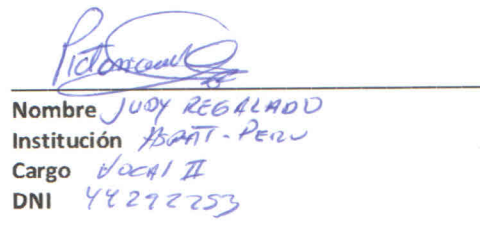 Nombre JUDY REGALADO
Institución ASPAT-PERU
Cargo VOCAL II
DNI 44292253